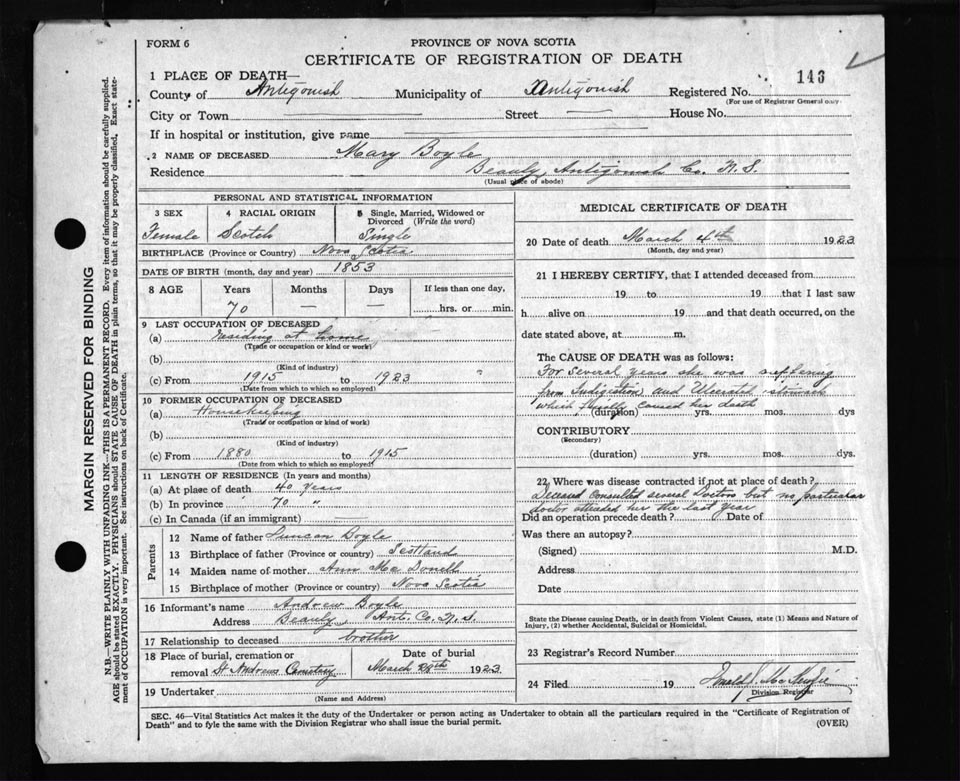 FORM 6
PROVINCE OF NOVA SCOTIA
CERTIFICATE OF REGISTRATION OF DEATH
143
1 PLACE OF DEATH—
County of Antigonish Municipality of Antigonish Registered No.
(For use of Registrar General only)
City or Town Street House No.
If in hospital or institution, give name
2 NAME OF DECEASED Mary Boyle
Residence Beauly, Antigonish Co. N.S.
(Usual place of abode)
PERSONAL AND STATISTICAL INFORMATION
3 SEX 4 RACIAL ORIGIN 5 Single, Married, Widowed or Divorced (Write the word)
Female Scotch Single
BIRTHPLACE (Province or Country) Nova Scotia
DATE OF BIRTH (month, day and year) 1853
8 AGE Years Months Days If less than one day,
70 — — hrs. or min.
9 LAST OCCUPATION OF DECEASED
(a) residing at home
(Trade or occupation or kind or work)
(b)
(Kind of industry)
(c) From 1915 to 1923
(Date from which to which so employed)
10 FORMER OCCUPATION OF DECEASED
(a) Housekeeping
(Trade or occupation or kind of work)
(b)
(Kind of industry)
(c) From 1880 to 1915
(Date from which to which so employed)
11 LENGTH OF RESIDENCE (In years and months)
(a) At place of death 40 years
(b) In province 70 "
(c) In Canada (if an immigrant)
Parents
12 Name of father Duncan Boyle
13 Birthplace of father (Province or country) Scotland
14 Maiden name of mother Ann Mc Donell
15 Birthplace of mother (Province or country) Nova Scotia
16 Informant's name Andrew Boyle
Address Beauly, Ant. Co. N.S.
17 Relationship to deceased brother
18 Place of burial, cremation or Date of burial
removal St Andrews Cemetery March 1923
19 Undertaker
(Name and Address)
MEDICAL CERTIFICATE OF DEATH
20 Date of death March 4th 1923
(Month, day and year)
21 I HEREBY CERTIFY, that I attended deceased from
19 to 19 that I last saw
h alive on 19 and that death occurred, on the
date stated above, at m.
The CAUSE OF DEATH was as follows:
For several years she was suffering
from Indigestion and Ulcerated stomach
which finally caused her death
(duration) yrs. mos. dys
CONTRIBUTORY
(Secondary)
(duration) yrs. mos. dys.
22 Where was disease contracted if not at place of death?
Deceased Consulted several Doctors but no particular
doctor attended her the last year
Did an operation precede death? Date of
Was there an autopsy?
(Signed) M.D.
Address
Date
State the Disease causing Death, or in death from Violent Causes, state (1) Means and Nature of
Injury, (2) whether Accidental, Suicidal or Homicidal.
23 Registrar's Record Number
24 Filed 19
Division Registrar
SEC. 46—Vital Statistics Act makes it the duty of the Undertaker or person acting as Undertaker to obtain all the particulars required in the "Certificate of Registration of
Death" and to fyle the same with the Division Registrar who shall issue the burial permit.
(OVER)
MARGIN RESERVED FOR BINDING
N.B.—WRITE PLAINLY WITH UNFADING INK—THIS IS A PERMANENT RECORD. Every item of information should be carefully supplied.
AGE should be stated EXACTLY. PHYSICIANS should STATE CAUSE OF DEATH in plain terms, so that it may be properly classified. Exact state-
ment of OCCUPATION is very important. See instructions on back of Certificate.